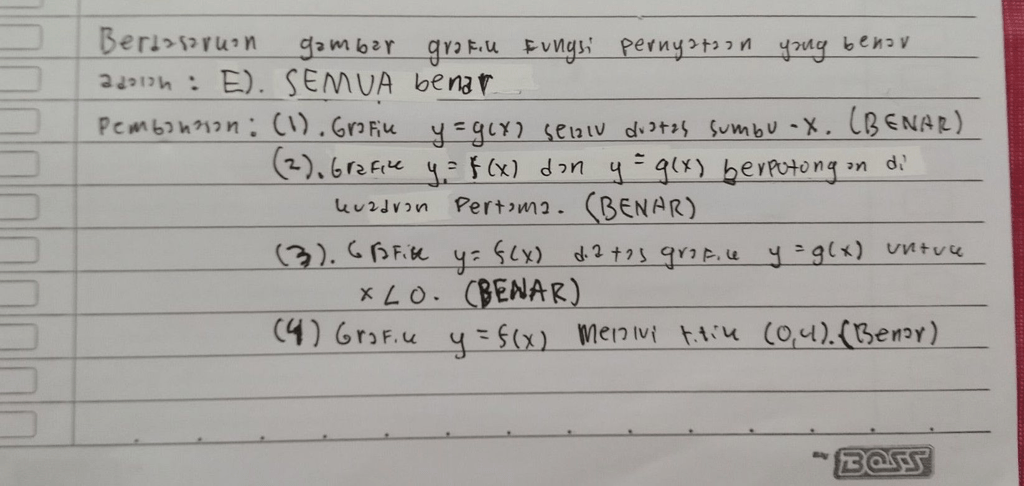 Berdasarkan gambar grafik fungsi pernyataan yang benar
adalah : E). SEMUA benar
Pembahasan : (1). Grafik y = g(x) selalu diatas sumbu -x. (BENAR)
(2). Grafik y = f(x) dan y = g(x) berpotongan di
kuadran Pertama. (BENAR)
(3). Grafik y = f(x) diatas grafik y = g(x) untuk
x < 0. (BENAR)
(4) Grafik y = f(x) Melalui titik (0,4). (Benar)
BOSS